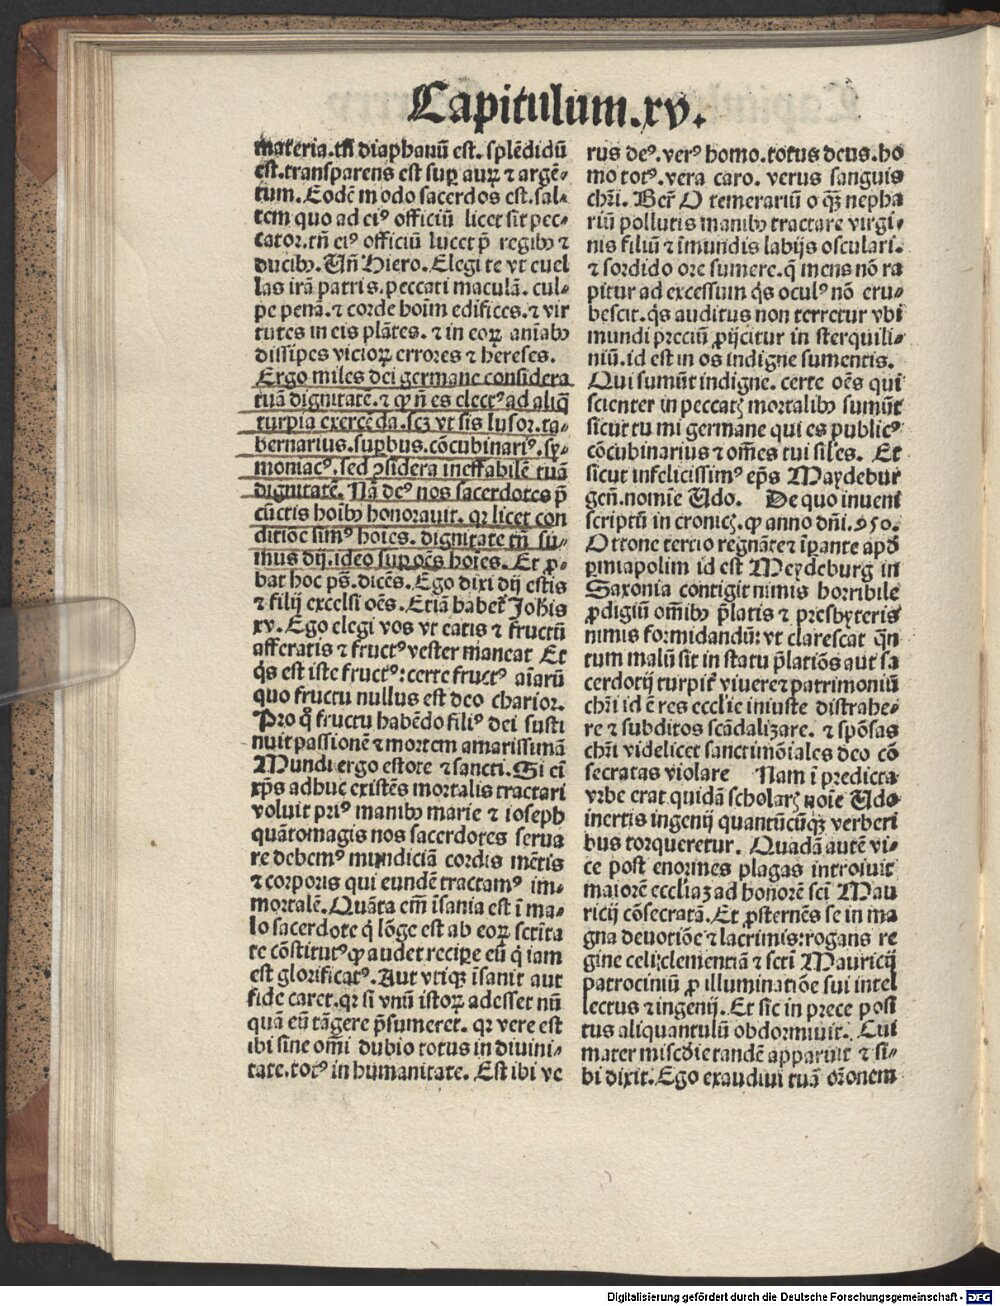 Capitulum.xv.
materia.tñ diaphanū est. splēdidū
est.transparens est sup aurꝫ ⁊ argē⸗
tum. Eodē modo sacerdos est.sal⸗
tem quo ad eiꝰ officiū licet sit pec⸗
cator.tñ eiꝰ officiū lucet p̄ regibꝫ ⁊
ducibꝫ. Vñ Hiero. Elegi te vt euel
las irā patris. peccati maculā. cul⸗
pe penā. ⁊ corde hoīm edifices. ⁊ vir
tutes in eis plātes. ⁊ in eoꝝ aniābꝫ
dissipes vicioꝝ errores ⁊ hereses.
Ergo miles dei germane considera
tuā dignitatē. ⁊ ꝙ nō es electꝰ ad aliq̄
turpia exercēda. scꝫ vt sis lusor. ta⸗
bernarius. supbus. cōcubinariꝰ. sy⸗
moniacꝰ. sed ꝯsidera ineffabilē tuā
dignitatē. Nā deꝰ nos sacerdotes p̄
cūctis hoībꝫ honorauit. qꝛ licet con
ditiōe simꝰ hoīes. dignitate tñ su⸗
mus dij. ideo sup oēs hoīes. Et ꝓ⸗
bat hoc pṡ. dicēs. Ego dixi dij estis
⁊ filij excelsi oēs. Etiā habet̄ Johīs
xv. Ego elegi vos vt eatis ⁊ fructū
afferatis ⁊ fructꝰ vester maneat Et
q̇s est iste fructꝰ: certe fructꝰ aīarū
quo fructu nullus est deo charior.
Pro q̊ fructu habēdo filiꝰ dei susti
nuit passionē ⁊ mortem amarissimā
Mundi ergo estote ⁊ sancti. Si eī
xp̄s adhuc existēs mortalis tractari
voluit priꝰ manibꝫ marie ⁊ ioseph
quātomagis nos sacerdotes serua
re debemꝰ mundiciā cordis mētis
⁊ corporis qui eundē tractamꝰ im⸗
mortalē. Quāta em̄ īsania est ī ma⸗
lo sacerdote q̇ lōge est ab eoꝝ scrīta
te cōstitutꝰ ꝙ audet recipe eū q̇ iam
est glorificatꝰ. Aut vtiqꝫ īsanit aut
fide caret. qꝛ si vnū istoꝝ adesset nū
quā eū tāgere p̄sumeret. qꝛ vere est
ibi sine omī dubio totus in diuini⸗
tate. totꝰ in humanitate. Est ibi ve
rus deꝰ. verꝰ homo. totus deus. ho
mo totꝰ. vera caro. verus sanguis
chr̄i. Ber̄ O temerariū o qꝫ nepha
riū pollutis manibꝫ tractare virgi⸗
nis filiū ⁊ īmundis labijs osculari.
⁊ sordido ore sumere. q̄ mens nō ra
pitur ad excessum q̇s oculꝰ nō eru⸗
bescit. q̇s auditus non terretur vbi
mundi preciū ꝓijcitur in sterquili⸗
niū. id est in os indigne sumentis.
Qui sumūt indigne. certe oēs qui
scienter in peccatꝭ mortalibꝫ sumūt
sicut tu mi germane qui es publicꝰ
cōcubinarius ⁊ om̄es tui siles. Et
sicut infelicissimꝰ ep̄s Maydebur
geñ. nomīe Udo. De quo inueni
scriptū in cronicꝭ. ꝙ anno dñi. 950.
Ottone tertio regnāte ⁊ īpante apd̄
ptniapolim id est Meydeburg in
Saxonia contigit nimis horribile
ꝓdigiū om̄ibꝫ p̄latis ⁊ presbyteris
nimis formidandū: vt clarescat q̄n
tum malū sit in statu p̄latiōs aut sa
cerdotij turpit̄ viuere ⁊ patrimoniū
chr̄i id ē res ecclie iniuste distrahe⸗
re ⁊ subditos scādalizare. ⁊ spōsas
chr̄i videlicet sanctimōiales deo cō
secratas violare Nam ī predicta
vrbe erat quidā scholarꝭ noīe Udo
inertis ingenij quantūcūqꝫ verberi
bus torqueretur. Quadā autē vi⸗
ce post enormes plagas introiuit
maiorē eccliaꝫ ad honorē sc̄i Mau
ricij cōsecratā. Et ꝓsternēs se in ma
gna deuotiōe ⁊ lacrimis: rogans re
gine celi: clementiā ⁊ sc̄ti Mauricij
patrociniū ꝓ illuminatiōe sui intel
lectus ⁊ ingenij. Et sic in prece posi
tus aliquantulū obdormiuit. Cui
mater misc̄die tandē apparuit ⁊ si⸗
bi dixit. Ego exaudiui tuā or̄onem
Digitalisierung gefördert durch die Deutsche Forschungsgemeinschaft - DFG